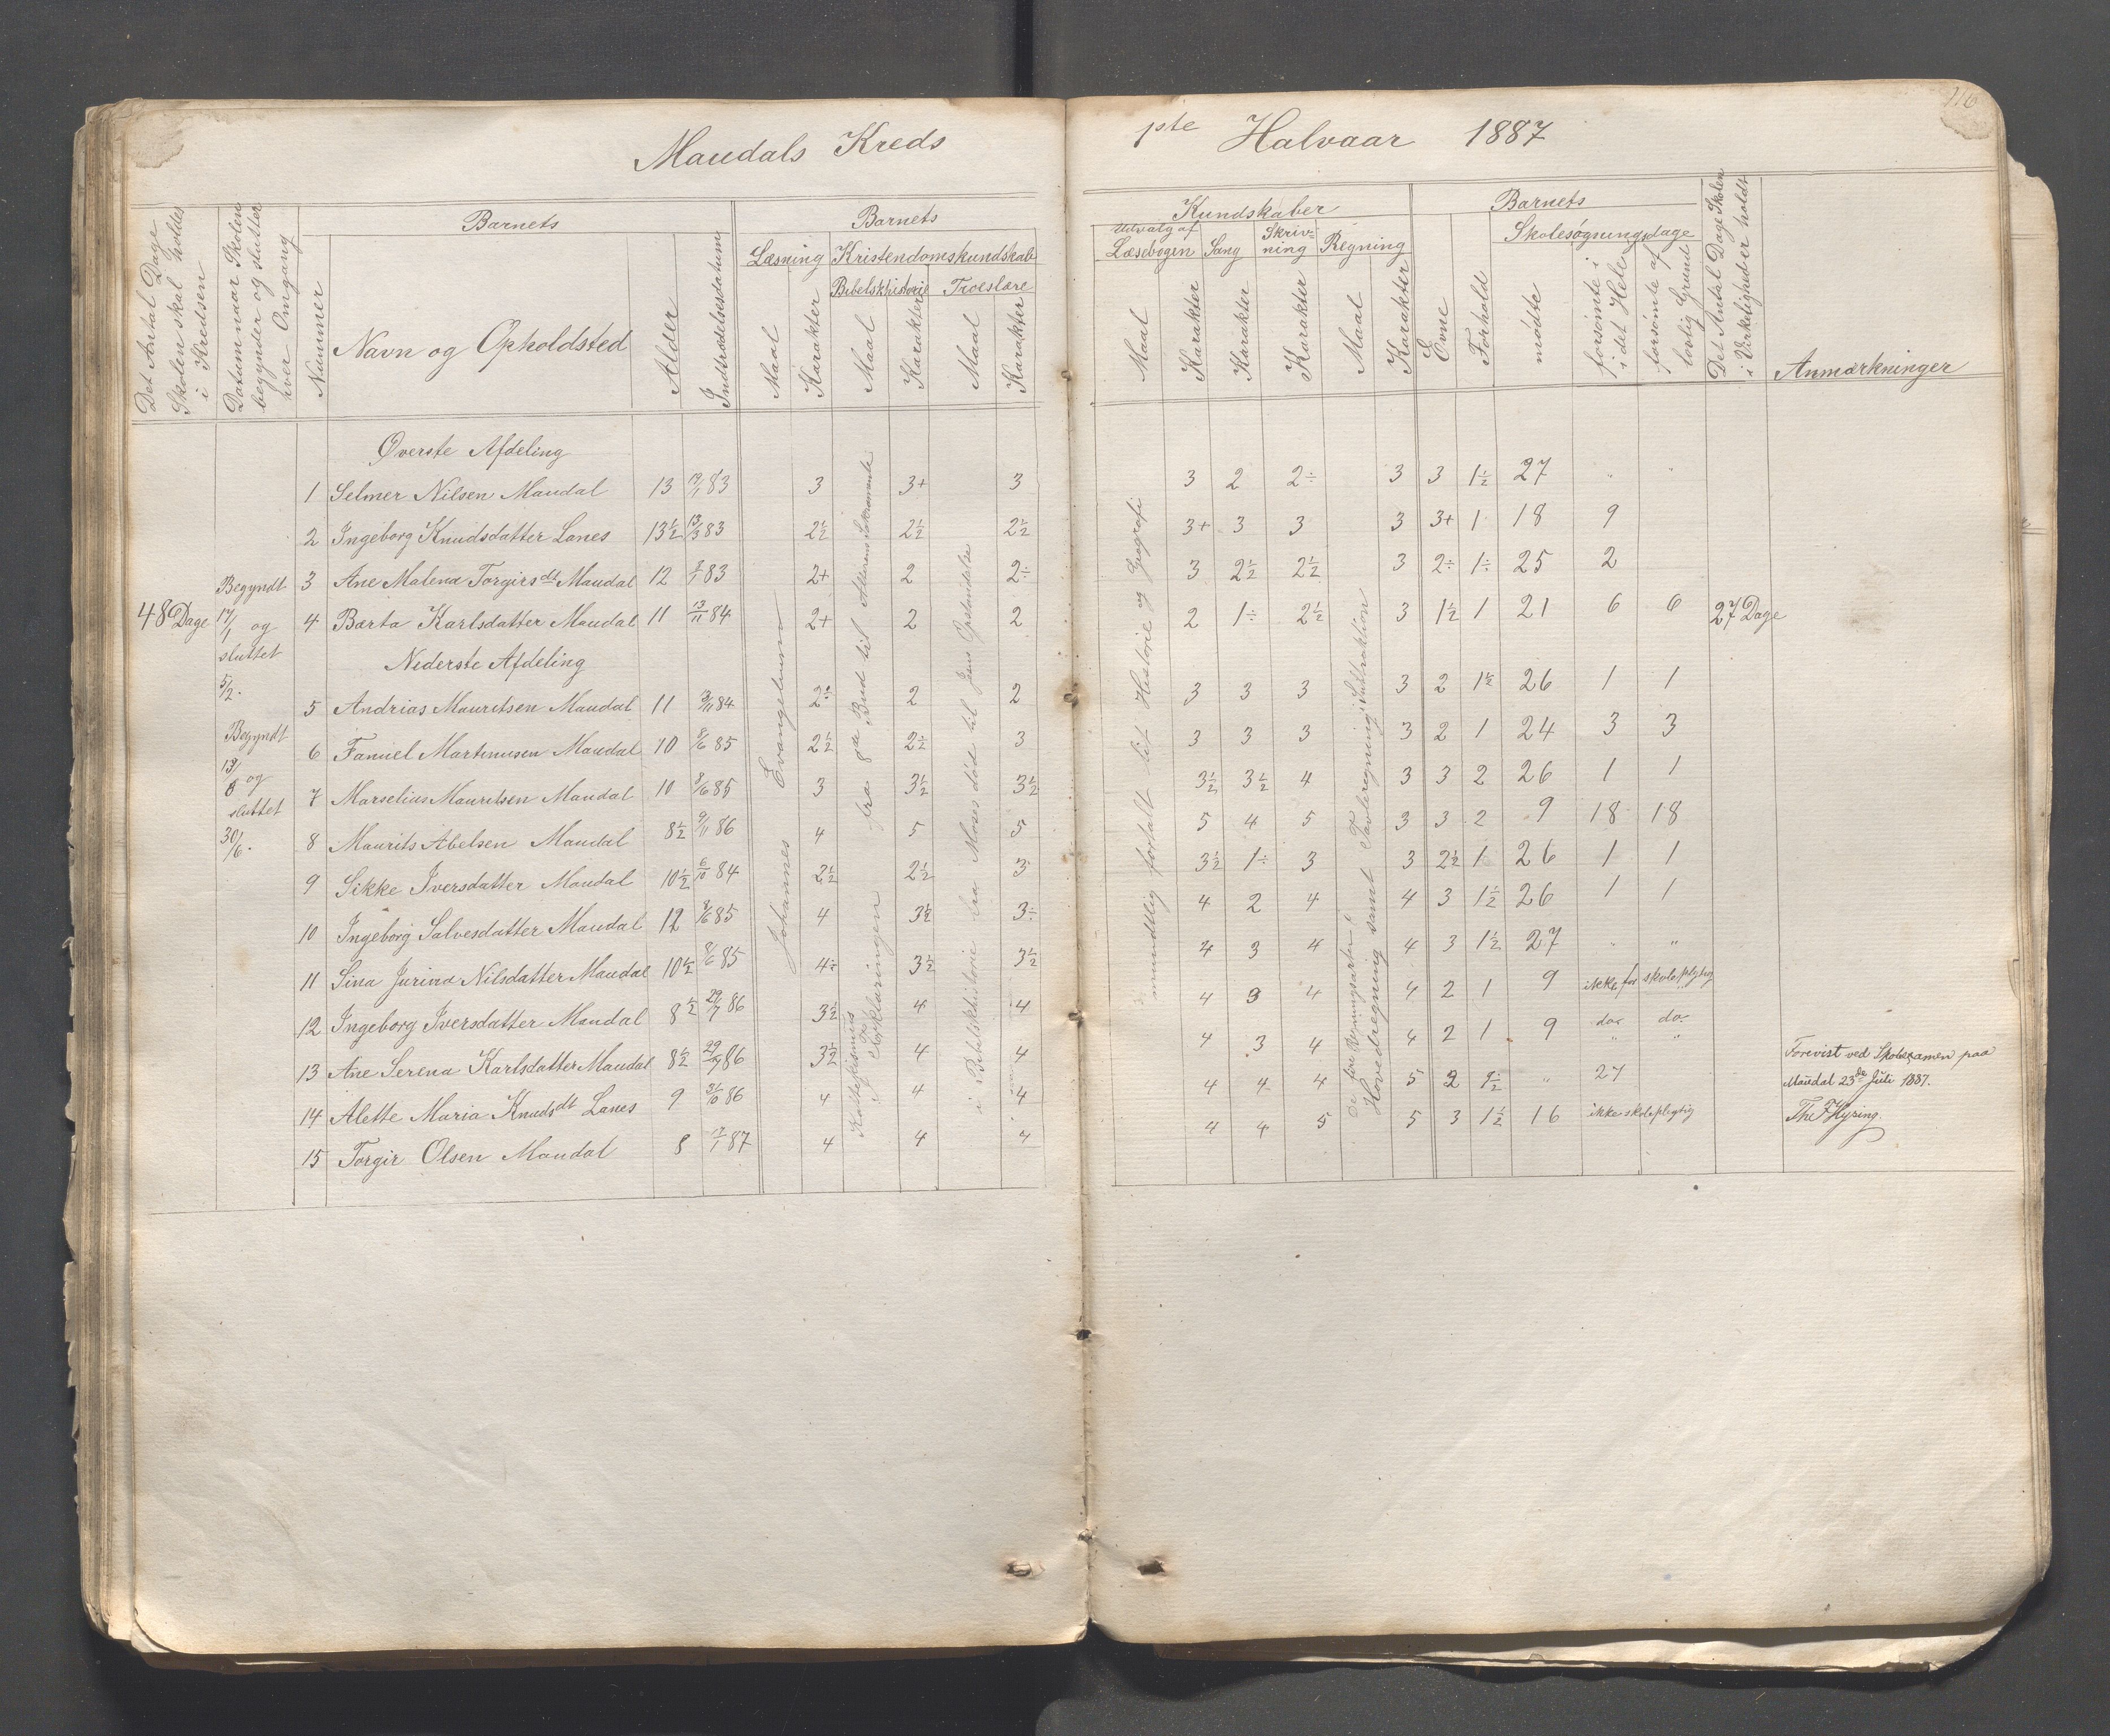 Maudals Kreds
1ste Halvaar 1887
Det Antal Dage Skolen skal holdes i Kredsen
Datum naar Skolen begynder og slutter hver Omgang
Nummer
Barnets
Navn og Opholdsted
Alder
Indtrædelsesdatum
Barnets
Læsning
Maal
Karakter
Kristendomskundskab
Bibelskhistorie
Maal
Karakter
Troeslære
Maal
Karakter
Kundskaber
Udvalg af Læsebogen
Maal
Karakter
Sang
Karakter
Skriv-
ning
Karakter
Regning
Maal
Karakter
Barnets
Evne
Forhold
Skolesøgningsdage
mødte
forsømte i det Hele
forsømte af lovlig Grund
Det Antal Dage Skolen i Virkeligheden er holdt
Anmærkninger
48 Dage
Begyndt
17/1 og
sluttet
5/2.
Begyndt
13/6 og
sluttet
30/6.
Johannes Evangelium
fra 8de Bud til Alterens Sakramente
Katekismus
Forklaringen
i Bibelskhistorie fra Moses død til Jesus Opstandelse
mundtlig fortalt lit Historie og Geografi
de fire Regningsarter i
Hovedregning samt Tavleregning i Subtraktion
27 Dage
Øverste Afdeling
1 Selmer Nilsen Maudal 13 19/1 83 3 3+ 3 3 2 2÷ 3 3 1½ 27 " "
2 Ingeborg Knudsdatter Lanes 13½ 13/3 83 2½ 2½ 2½ 3+ 3 3 3 3+ 1 18 9
3 Ane Malena Torgirsdt Maudal 12 83 2+ 2 2÷ 3 2½ 2½ 3 2÷ 1÷ 25 2
4 Barta Karlsdatter Maudal 11 13/11 84 2+ 2 2 2 1÷ 2½ 3 1½ 1 21 6 6
Nederste Afdeling
5 Andrias Mauritsen Maudal 11 3/11 84 2÷ 2 2 3 3 3 3 2 1½ 26 1 1
6 Fanuel Martinusen Maudal 10 8/6 85 2½ 2½ 3 3 3 3 3 2 1 24 3 3
7 Marselius Mauritsen Maudal 10 8/6 85 3 3½ 3½ 3½ 3½ 4 3 3 2 26 1 1
8 Maurits Abelsen Maudal 8½ 9/11 86 4 5 5 5 4 5 3 3 2 9 18 18
9 Sikke Iversdatter Maudal 10½ 6/10 84 2½ 2½ 3 3½ 1÷ 3 3 2½ 1 26 1 1
10 Ingeborg Salvesdatter Maudal 12 8/6 85 4 3½ 3÷ 4 2 4 4 3 1½ 26 1 1
11 Sina Jurina Nilsdatter Maudal 10½ 8/6 85 4÷ 3½ 3½ 4 3 4 4 3 1½ 27 " "
12 Ingeborg Iversdatter Maudal 8½ 29/7 86 3½ 4 4 4 3 4 4 2 1 9 ikke for skoleplygtig
13 Ane Serena Karlsdatter Maudal 8½ 29/7 86 3½ 4 4 4 3 4 4 2 1 9 do do
14 Alette Maria Knudsdt Lanes 9 3/10 86 4 4 4 4 4 4 5 2 1½ " 27
15 Torgir Olsen Maudal 8 17/1 87 4 4 4 4 4 5 5 3 1½ 16 ikke skoleplygtig
Forevist ved Skolexamen paa
Maudal 23de Juli 1887.